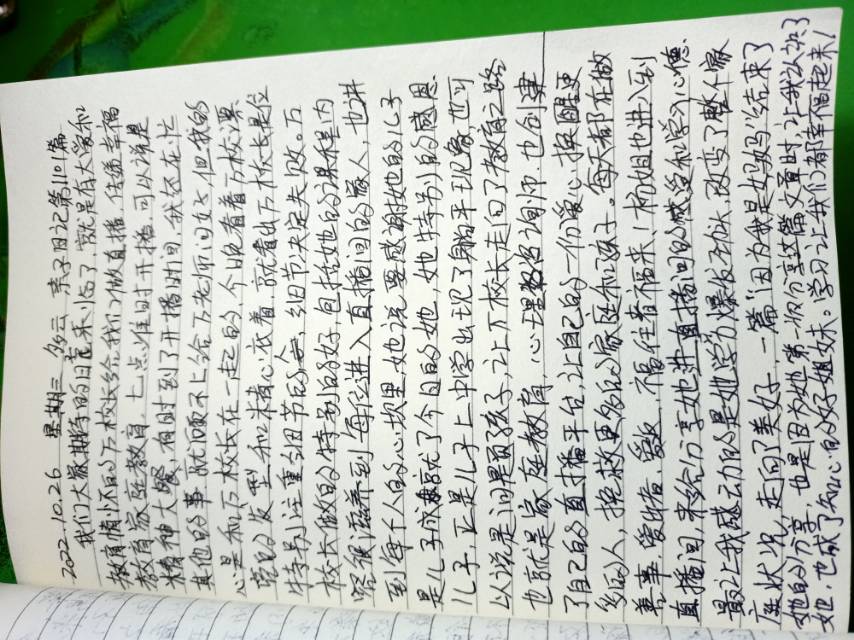 2022.10.26 星期三 多云 亲子日记第1101篇
我们大家期待的日子来临了,就是有大爱和
教育情怀的万校长给我们做直播,传播幸福
教育家庭教育,七点准时开播,可以说是
精神大餐,有时到了开播时间,我还在忙
其他的事,就顾不上给万老师问好,但我的
心是和万校长在一起的,今晚看着万校长
的发型和精心衣着,就看出万校长是位
特别注重细节的人,细节决定失败。万
校长做的特别的好,包括她的课程里内
容很滋养到每位进入直播间的家人,也讲
到每个人的心坎里,她说要感谢她的儿子
是儿子成就了今日的她,她特别的感恩
儿子,正是儿子上中学出现了躺平现象,也可
以说是问题孩子,让万校长走向了教育之路
也就是家庭教育,心理咨询师,也创建
了自己的直播平台,让自己的一份爱心,换醒更
多的人,挽救更多的家庭和孩子。每天都在做
善事,爱出者爱返,福往者福来!杨姐也进入到
直播间,来给分享她进直播间的感受和学习心得
最让我感动的是她学习爆发子成长,改变了整个家
庭状况,走向了美好,一篇“因为我是妈妈”结束了
她的分享,也是因为她第一次分享这篇文章时让我认识了
她,也成了知心的好姐妹。学习让我们都幸福起来!